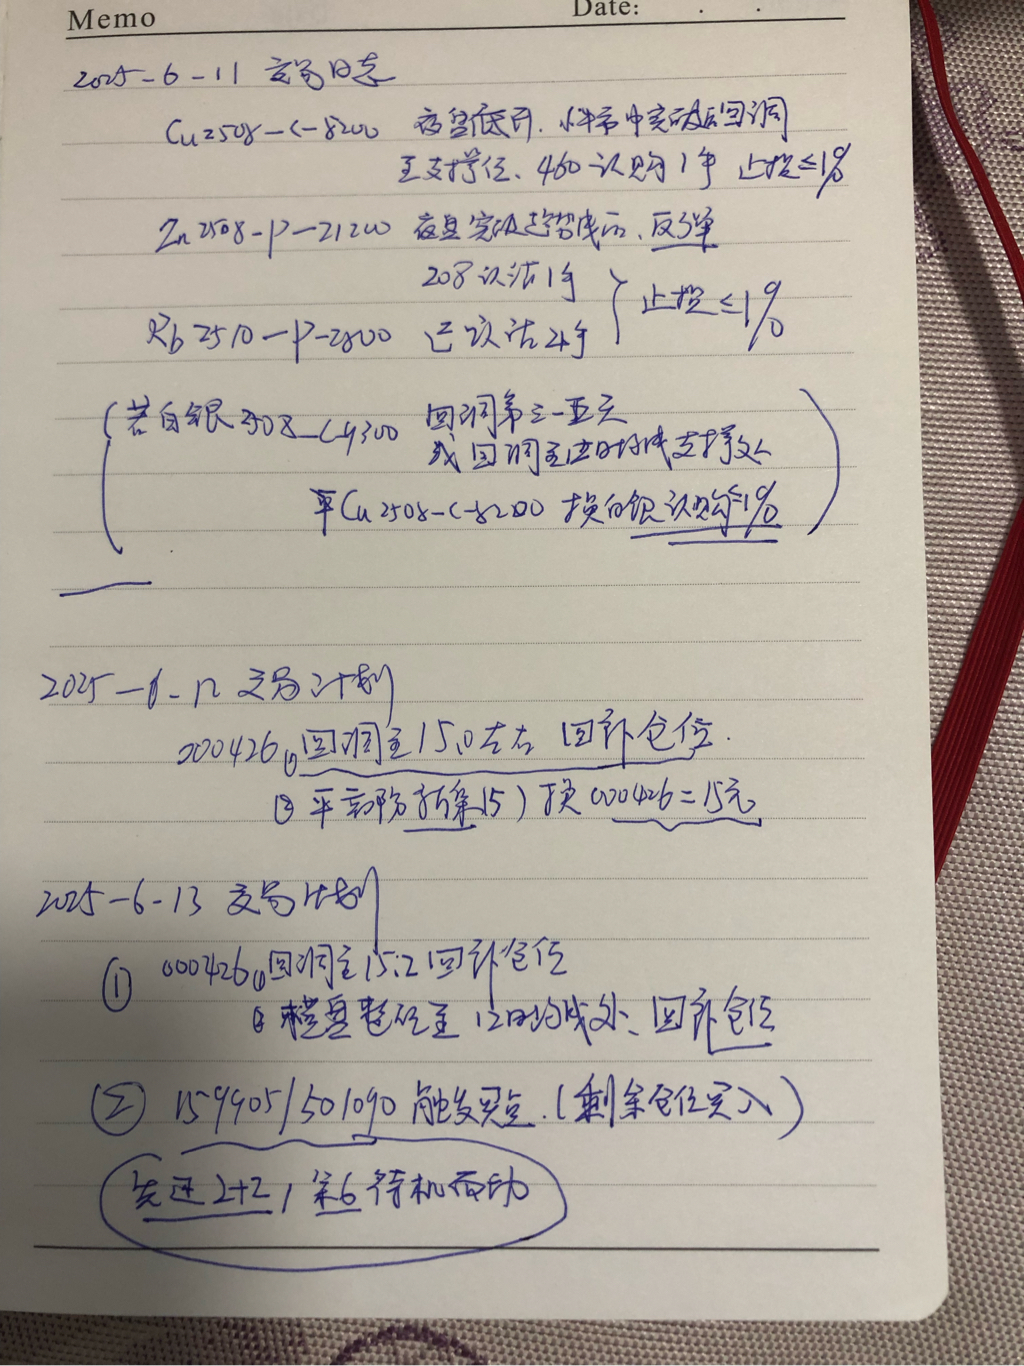 Memo Date: . .
2025-6-11 交易日志
Cu2508-C-8200 夜盘低开. 中突破后回调
至支撑位、460认购1手 止损≤1%
Zn2508-P-21200 夜盘突破趋势线后、反弹
208认沽1手
止损≤1%
Rb2510-P-2800 已认沽4手
(若白银2508-C-9300 回调第三-五天
或回调至12日均线支撑处
平Cu2508-C-8200 换白银认购≤1%)
2025-6-12 交易计划
000426 ①回调至15.0左右 回补仓位.
② 平 15) 换000426=15元
2025-6-13 交易计划
① 000426 ①回调至15.2回补仓位
② 横盘整理至12日均线处、回补仓位
② 159905/501090 触发买点.(剩余仓位买入)
先进2+2, 余6待机而动